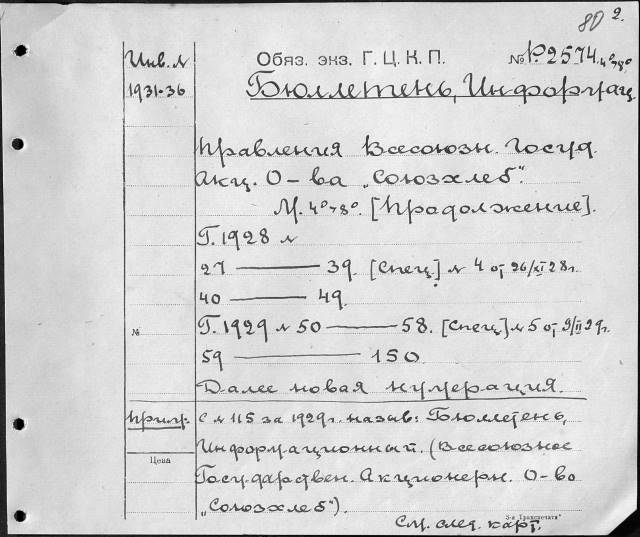 80 2.
Инв. №
1931-36
Обяз. экз. Г. Ц. К. П. № Р.2574. 4°,8°
Бюллетень, Информац.
Правления Всесоюзн. Госуд.
Акц. О-ва „Союзхлеб“.
М. 4°,8°. [Продолжение].
Г. 1928 №
27 —— 39. [Спец.] № 4 от 26/XI 28 г.
40 —— 49.
№ Г. 1929 № 50 —— 58. [Спец] № 5 от 9/II 29 г.
59 —— 150
Далее новая нумерация.
Прим. С № 115 за 1929 г. назыв: Бюллетень,
Информационный. (Всесоюзное
Цена
Государствен. Акционерн. О-во
„Союзхлеб“).
См. след. карт.
3-я Транспечати"